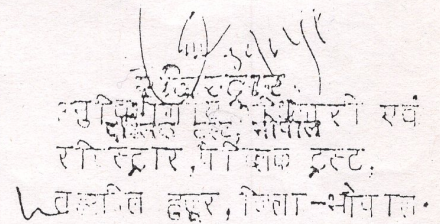 रजिस्ट्रार
अनुविभागीय अधिकारी एवं
पब्लिक ट्रस्ट, भोपाल
रजिस्ट्रार, पब्लिक ट्रस्ट,
तहसील हुजूर, जिला-भोपाल.